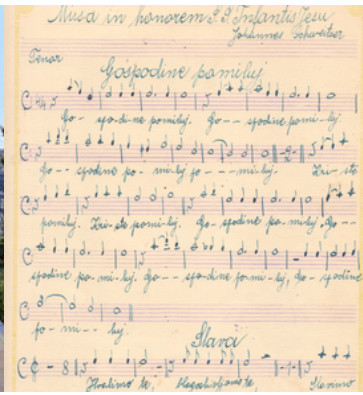 Missa in honorem S. S. Infantis Jesu
Johannes Schweitzer
Tenor
Gospodine pomiluj
Go- spo-di-ne pomiluj. Go- - spodine pomi-luj
Go- - spodine po- mi-luj po- - - mi-luj. Kri- ste
pomiluj. Kri-ste pomi-luj. Go-spodine po-mi-luj. Go- -
spodine po-mi-luj. Go- - spo-dine po-mi-luj, Go- spodine
po- mi- - luj.
Slava
Hvalimo te, blagoslivljamo te, Slavimo